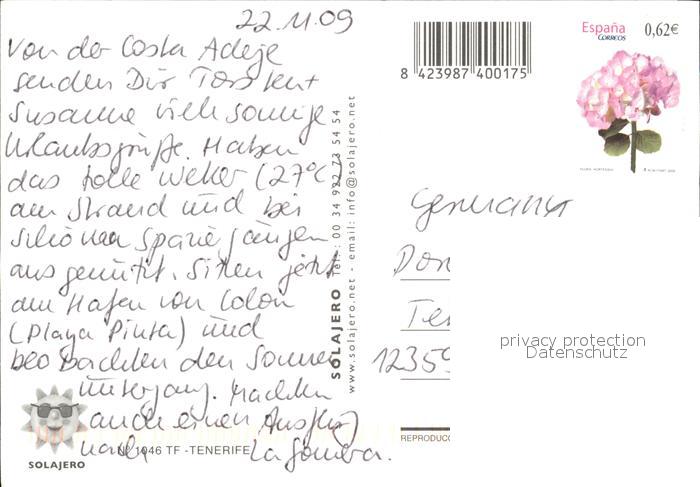 22.11.09
Von der Costa Adeje
senden Dir Torsten +
Susanne viele sonnige
Urlaubsgrüße. Haben
das tolle Wetter (27°C)
am Strand und bei
schönen Spaziergängen
ausgenützt. Sitzen jetzt
am Hafen von Colon
(Playa Pinta) und
beobachten den Sonnen
untergang. Machten
auch einen Ausflug
nach La Gomera.
SOLAJERO Tel.: 00 34 922 73 54 54
www.solajero.net - email: info@solajero.net
SOLAJERO
Nº 1046 TF -TENERIFE
8 423987 400175
España
CORREOS
0,62€
Germania
12359
privacy protection
Datenschutz
REPRODUCC